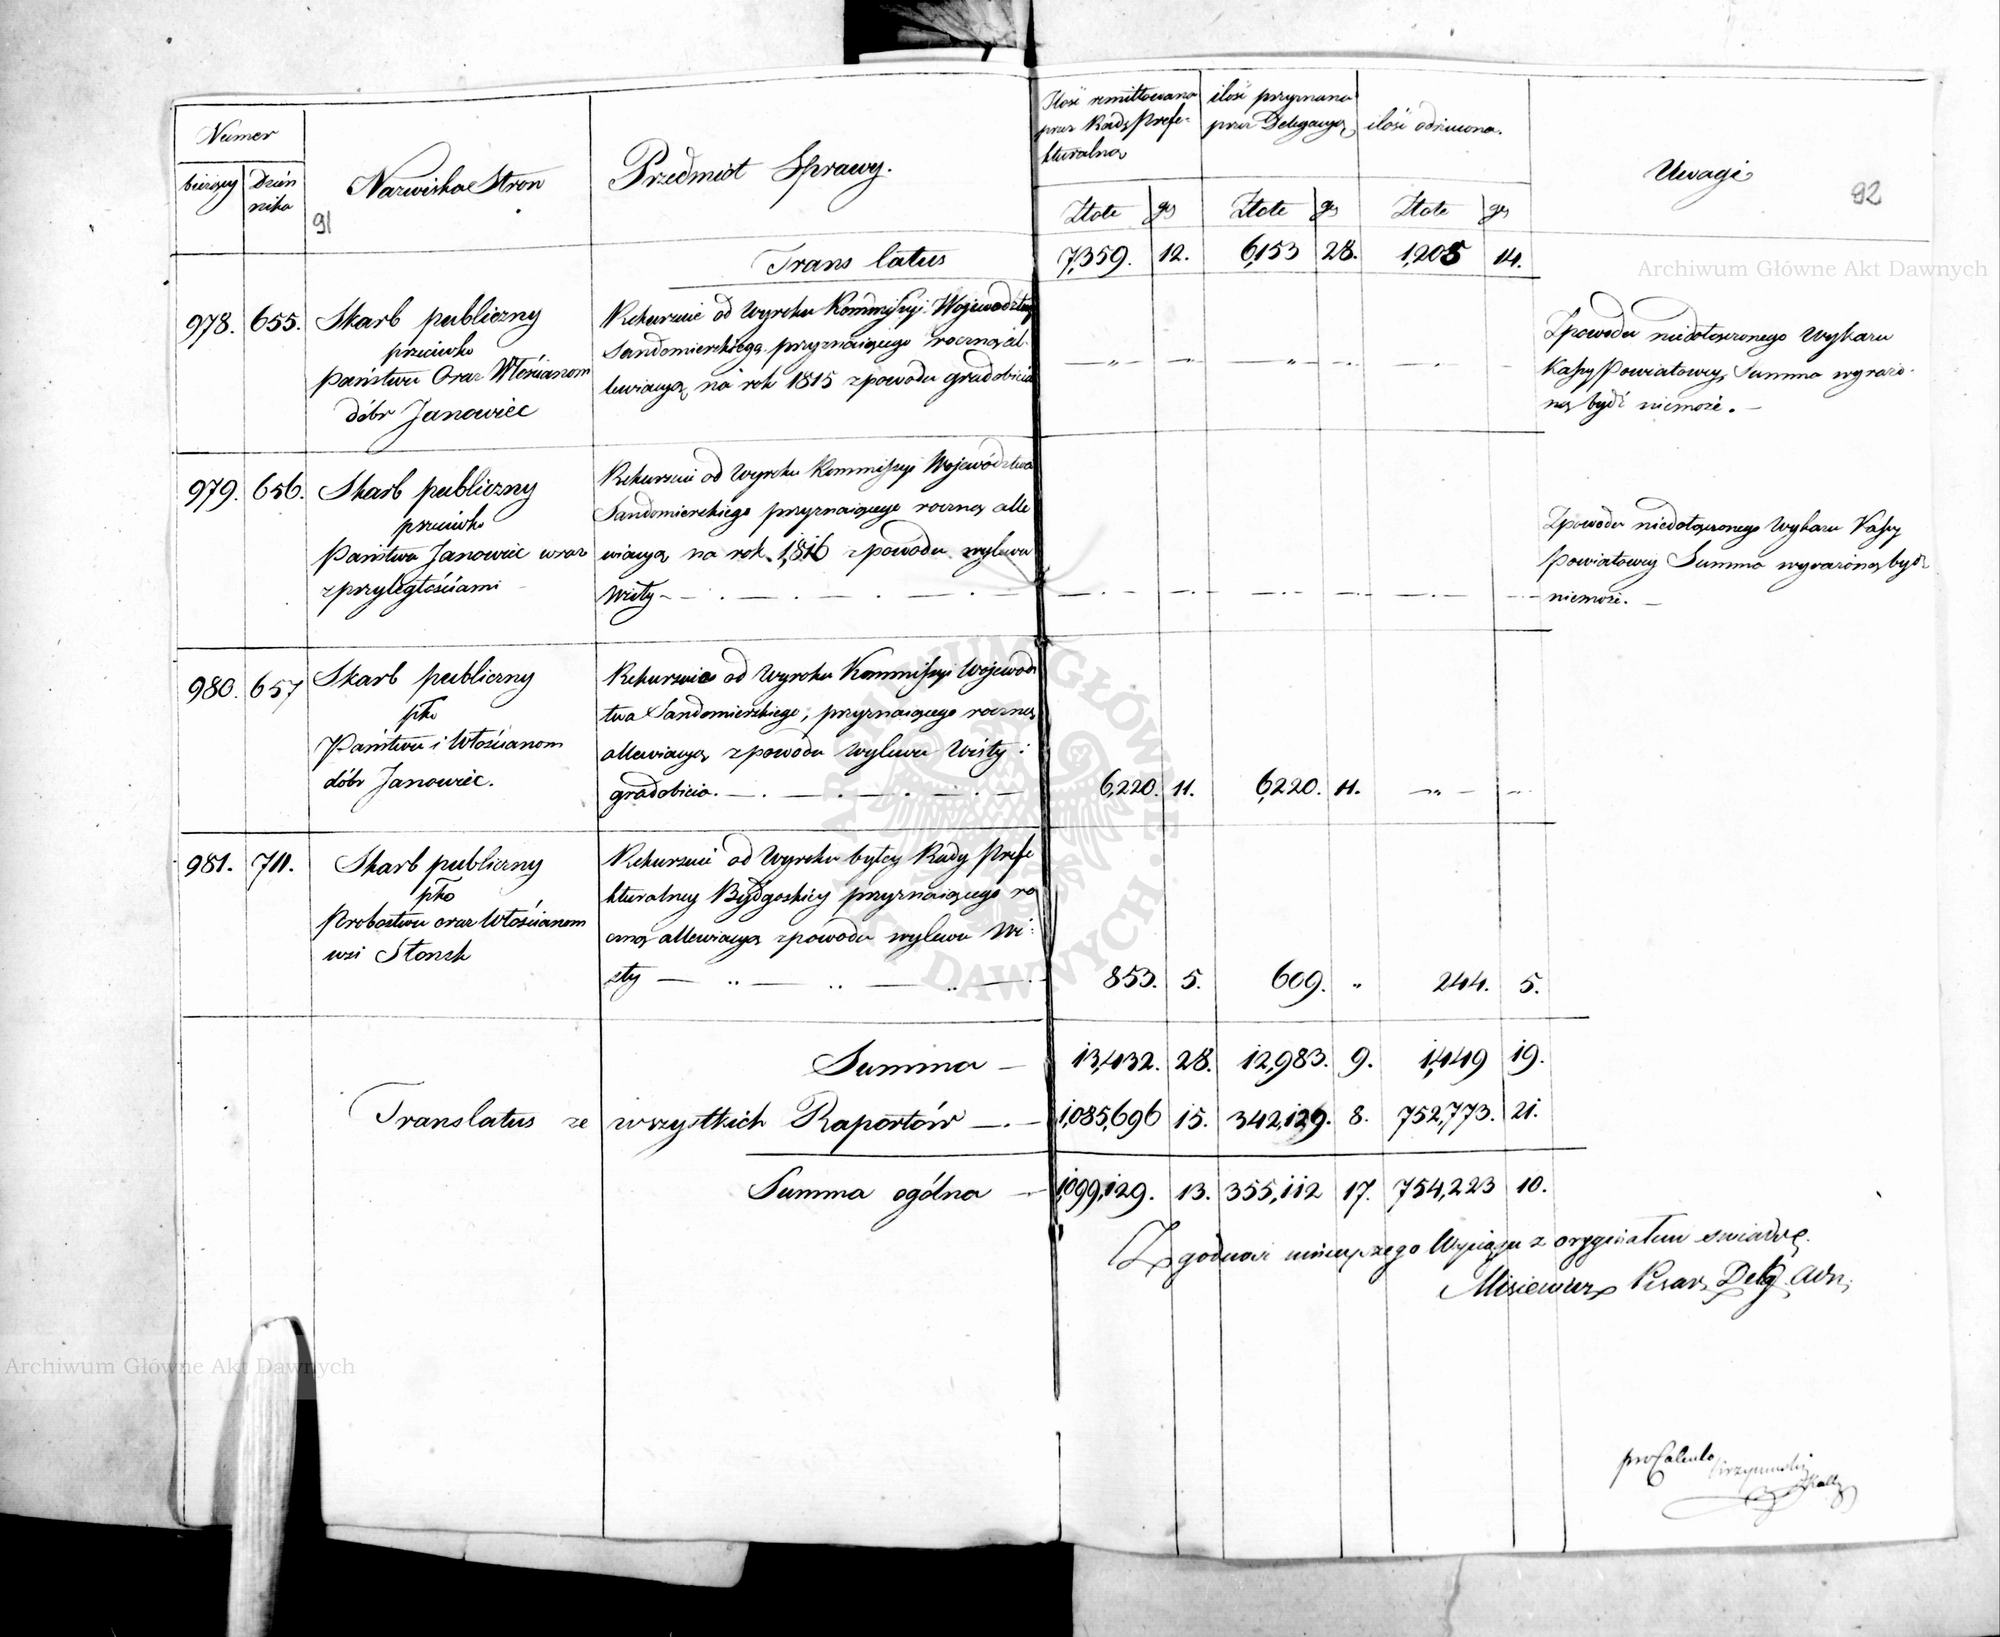 Numer
bieżący
Dzien
nika
Nazwiska Stron
91
Przedmiot Sprawy.
Ilość remittowana
przez Radę Prefe-
kturalną
ilość przyznana
przez Delegacyą
ilość odrzucona.
Uwagi
92
Złote gr
Złote gr
Złote gr
Trans latus 7,359. 12. 6,153 28. 1,205 14.
Archiwum Główne Akt Dawnych
978. 655.
Skarb publiczny
przeciwko
Państwu Oraz Włościanom
dóbr Janowiec
Rekursuie od Wyroku Kommissyi Wojewodztwa
Sandomierskiego przyznaiącego roczną al-
lewiacyą na rok 1815 z powodu gradobicia
Z powodu niedołączonego Wykazu
Kassy Powiatowey Summa wyrażo-
ną bydź niemoże. –
979. 656.
Skarb publiczny
przeciwko
Państwu Janowiec wraz
z przyległościami
Rekursuie od Wyroku Kommissyi Województwa
Sandomierskiego przyznaiącego roczną alle
wiacyą na rok 1,816 z powodu wylewu
Wisły
Z powodu niedołączonego Wykazu Kassy
Powiatowey Summa wyrażoną bydź
niemoże. –
980. 657
Skarb publiczny
pko
Państwu i Włościanom
dóbr Janowiec.
Rekursuie od Wyroku Kommissyi Wojewodz
twa Sandomierskiego, przyznaiącego roczną
allewiacyą z powodu wylewu Wisły i
gradobicia. 6,220. 11. 6,220. 11.
981. 711.
Skarb publiczny
pko
Probostwu oraz Włościanom
wsi Słonsk
Rekursuie od Wyroku byłey Rady Prefe
kturalney Bydgoskiey przyznaiącego ro
czną allewiacyą z powodu wylewu Wi-
sły 853. 5. 609. „ 244. 5.
Summa – 13,432. 28. 12,983. 9. 1,449 19.
Translatus ze wszystkich Raportów 1,085,696 15. 342,129. 8. 752,773. 21.
Summa ogólna – 1,099,129. 13. 355,112 17. 754,223 10.
Zgodność ninieyszego Wyciągu z oryginałem świadczę.
Misiewicz Pisarz Deleg. Adm.
pro Calculo
Archiwum Główne Akt Dawnych
ARCHIWUM GŁÓWNE AKT DAWNYCH